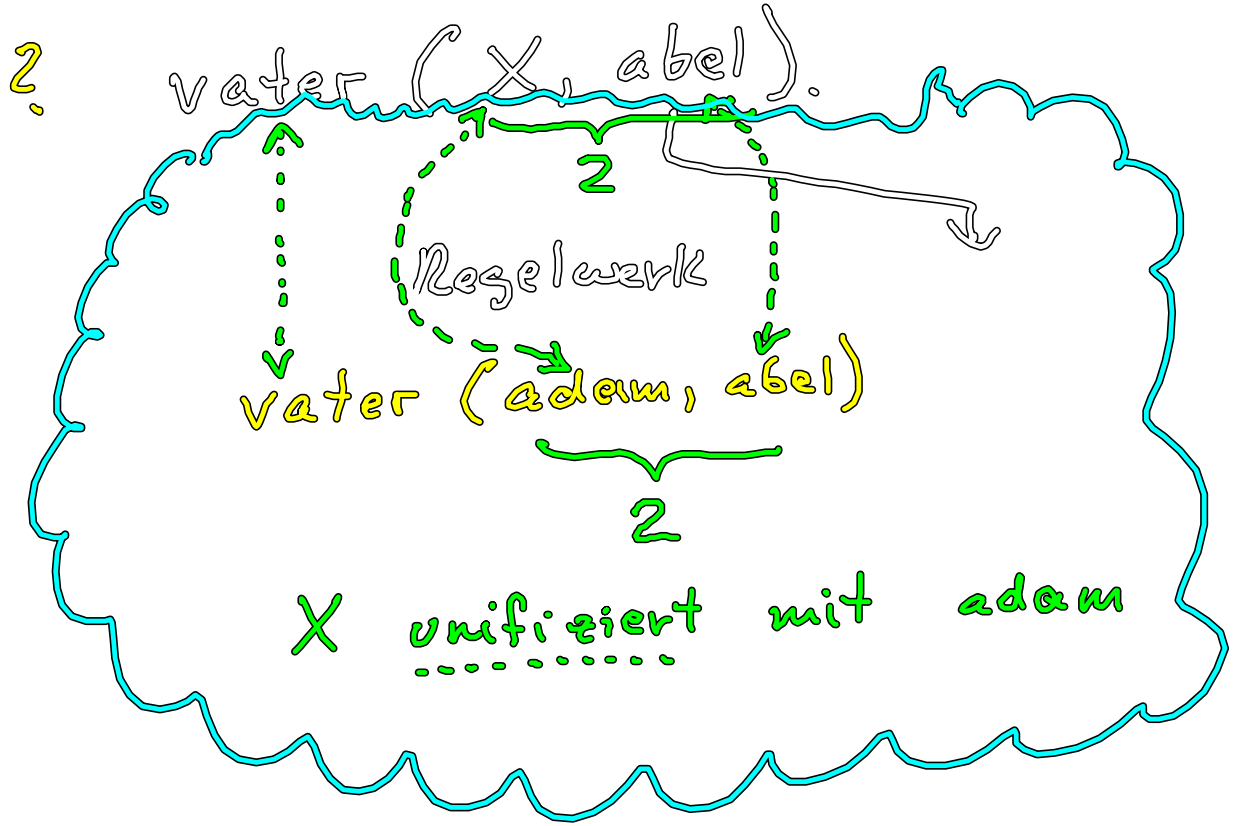 ? vater ( X, abel ).
2
Regelwerk
vater (adam, abel)
2
X unifiziert mit adam